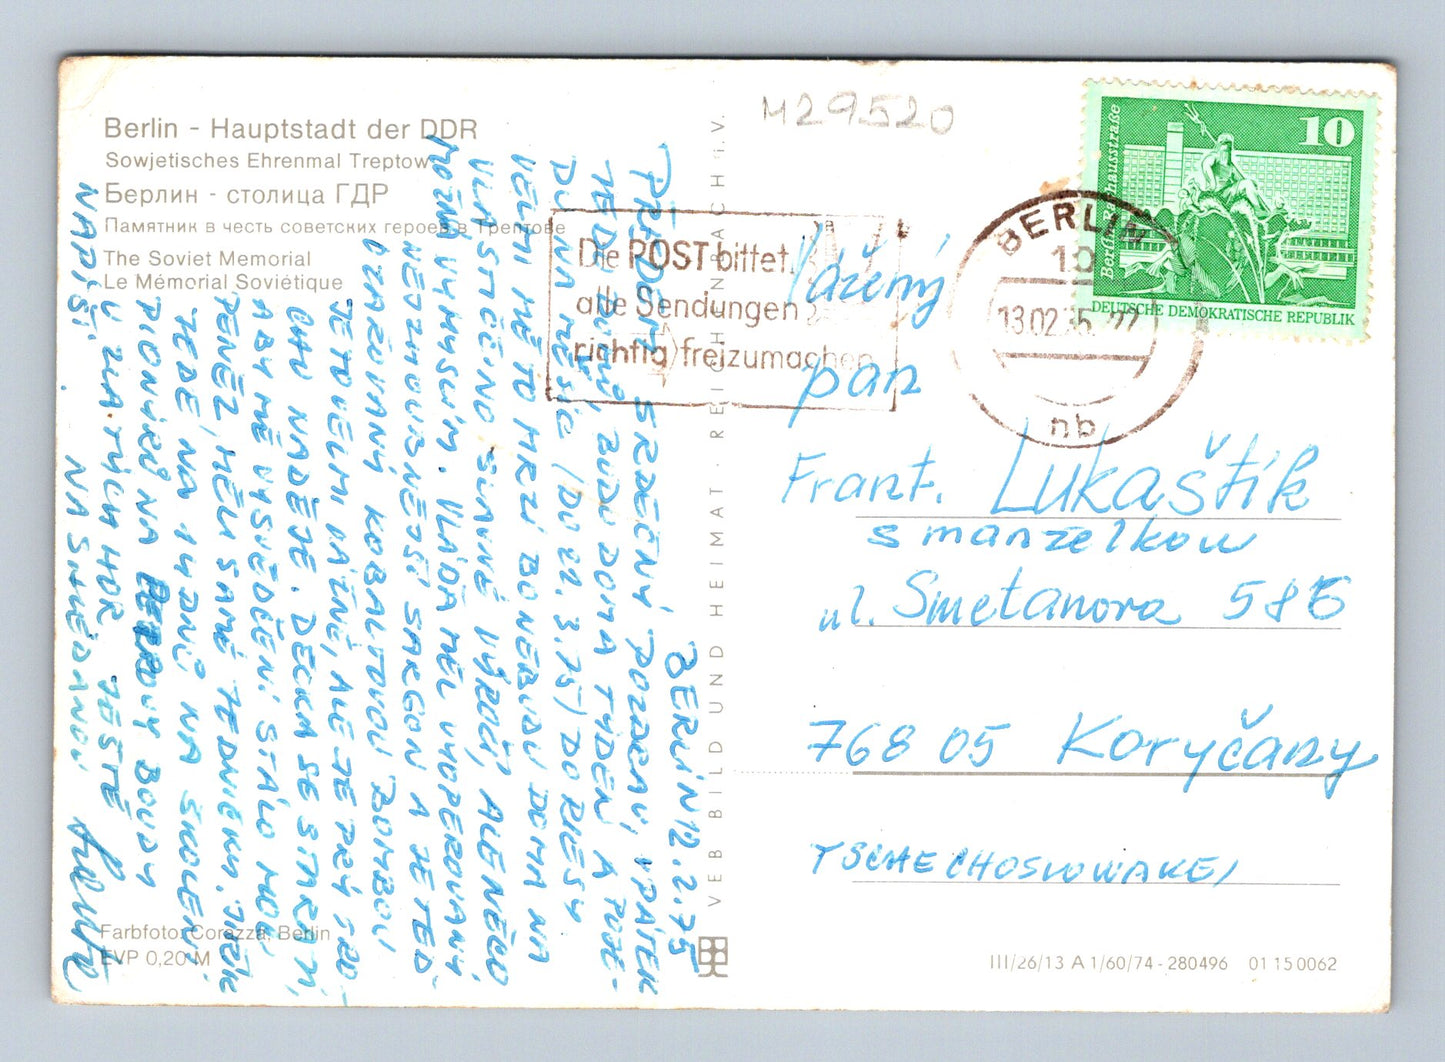 Berlin - Hauptstadt der DDR
Sowjetisches Ehrenmal Treptow
Берлин - столица ГДР
Памятник в честь советских героев в Трептове
The Soviet Memorial
Le Mémorial Soviétique
BERLIN 12.2.75
SRDEČNÝ POZDRAV, V PÁTEK
JEDU DOMŮ, BUDU DOMA TÝDEN A POJE-
DU NA MĚSÍC (DO 22.3.75) DO RIESY
VELMI MĚ TO MRZÍ BO NEBUDU DOMA NA
VLASTNĚ SLAVNÉ VÝROČÍ, ALE NĚCO
VYMYSLÍM. VLÁĎA MĚL VYOPEROVANÝ
NEJZHOUBNĚJŠÍ SARGON A JE TEĎ
OZAŘOVANÝ KOBALTOVOU BOMBOU
JE TO VELMI VÁŽNÉ, ALE JE PRÝ SRO-
NADĚJE. DĚCKA SE STARAJÍ,
ABY MĚ VYSVĚDČENÍ STÁLO MOC
PENĚZ, MĚLI SAMÉ JEDNIČKY. JIŘÍK
JEDE NA 14 DNŮ NA ŠKOLENÍ
PIONÝRŮ NA PETROVY BOUDY
U ZLATÝCH HOR JEŠTĚ
NAPÍŠI.
NA SHLEDANOU
Farbfoto: Corazza, Berlin
EVP 0,20 M
VEB BILD UND HEIMAT · REICHENBACH i. V.
M29520
Die POST bittet,
alle Sendungen
richtig freizumachen
BERLIN
10
13.02.75
nb
10
DEUTSCHE DEMOKRATISCHE REPUBLIK
Vážený
pan
Frant. Lukaštík
s manželkou
ul. Smetanova 586
768 05 Koryčany
TSCHECHOSLOWAKEI
III/26/13 A 1/60/74 - 280496 01 15 0062